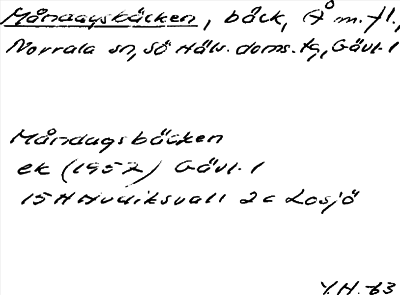 Måndagsbäcken, bäck, (Å m. fl.,
Norrala sn, Sö Häls. doms. tg, Gävl. l
Måndagsbäcken
ek (1957) Gävl. l
15H Hudiksvall 2c Losjö
Y.H. -63